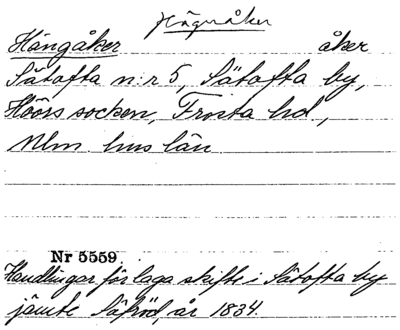 Hägnåker
Hängåker åker
Sätofta n:r 5, Sätofta by,
Höörs socken, Frosta hd.,
Mlm hus län
Nr 5559.
Handlingar för laga skifte i Sätofta by
jämte Säfröd, år 1834.